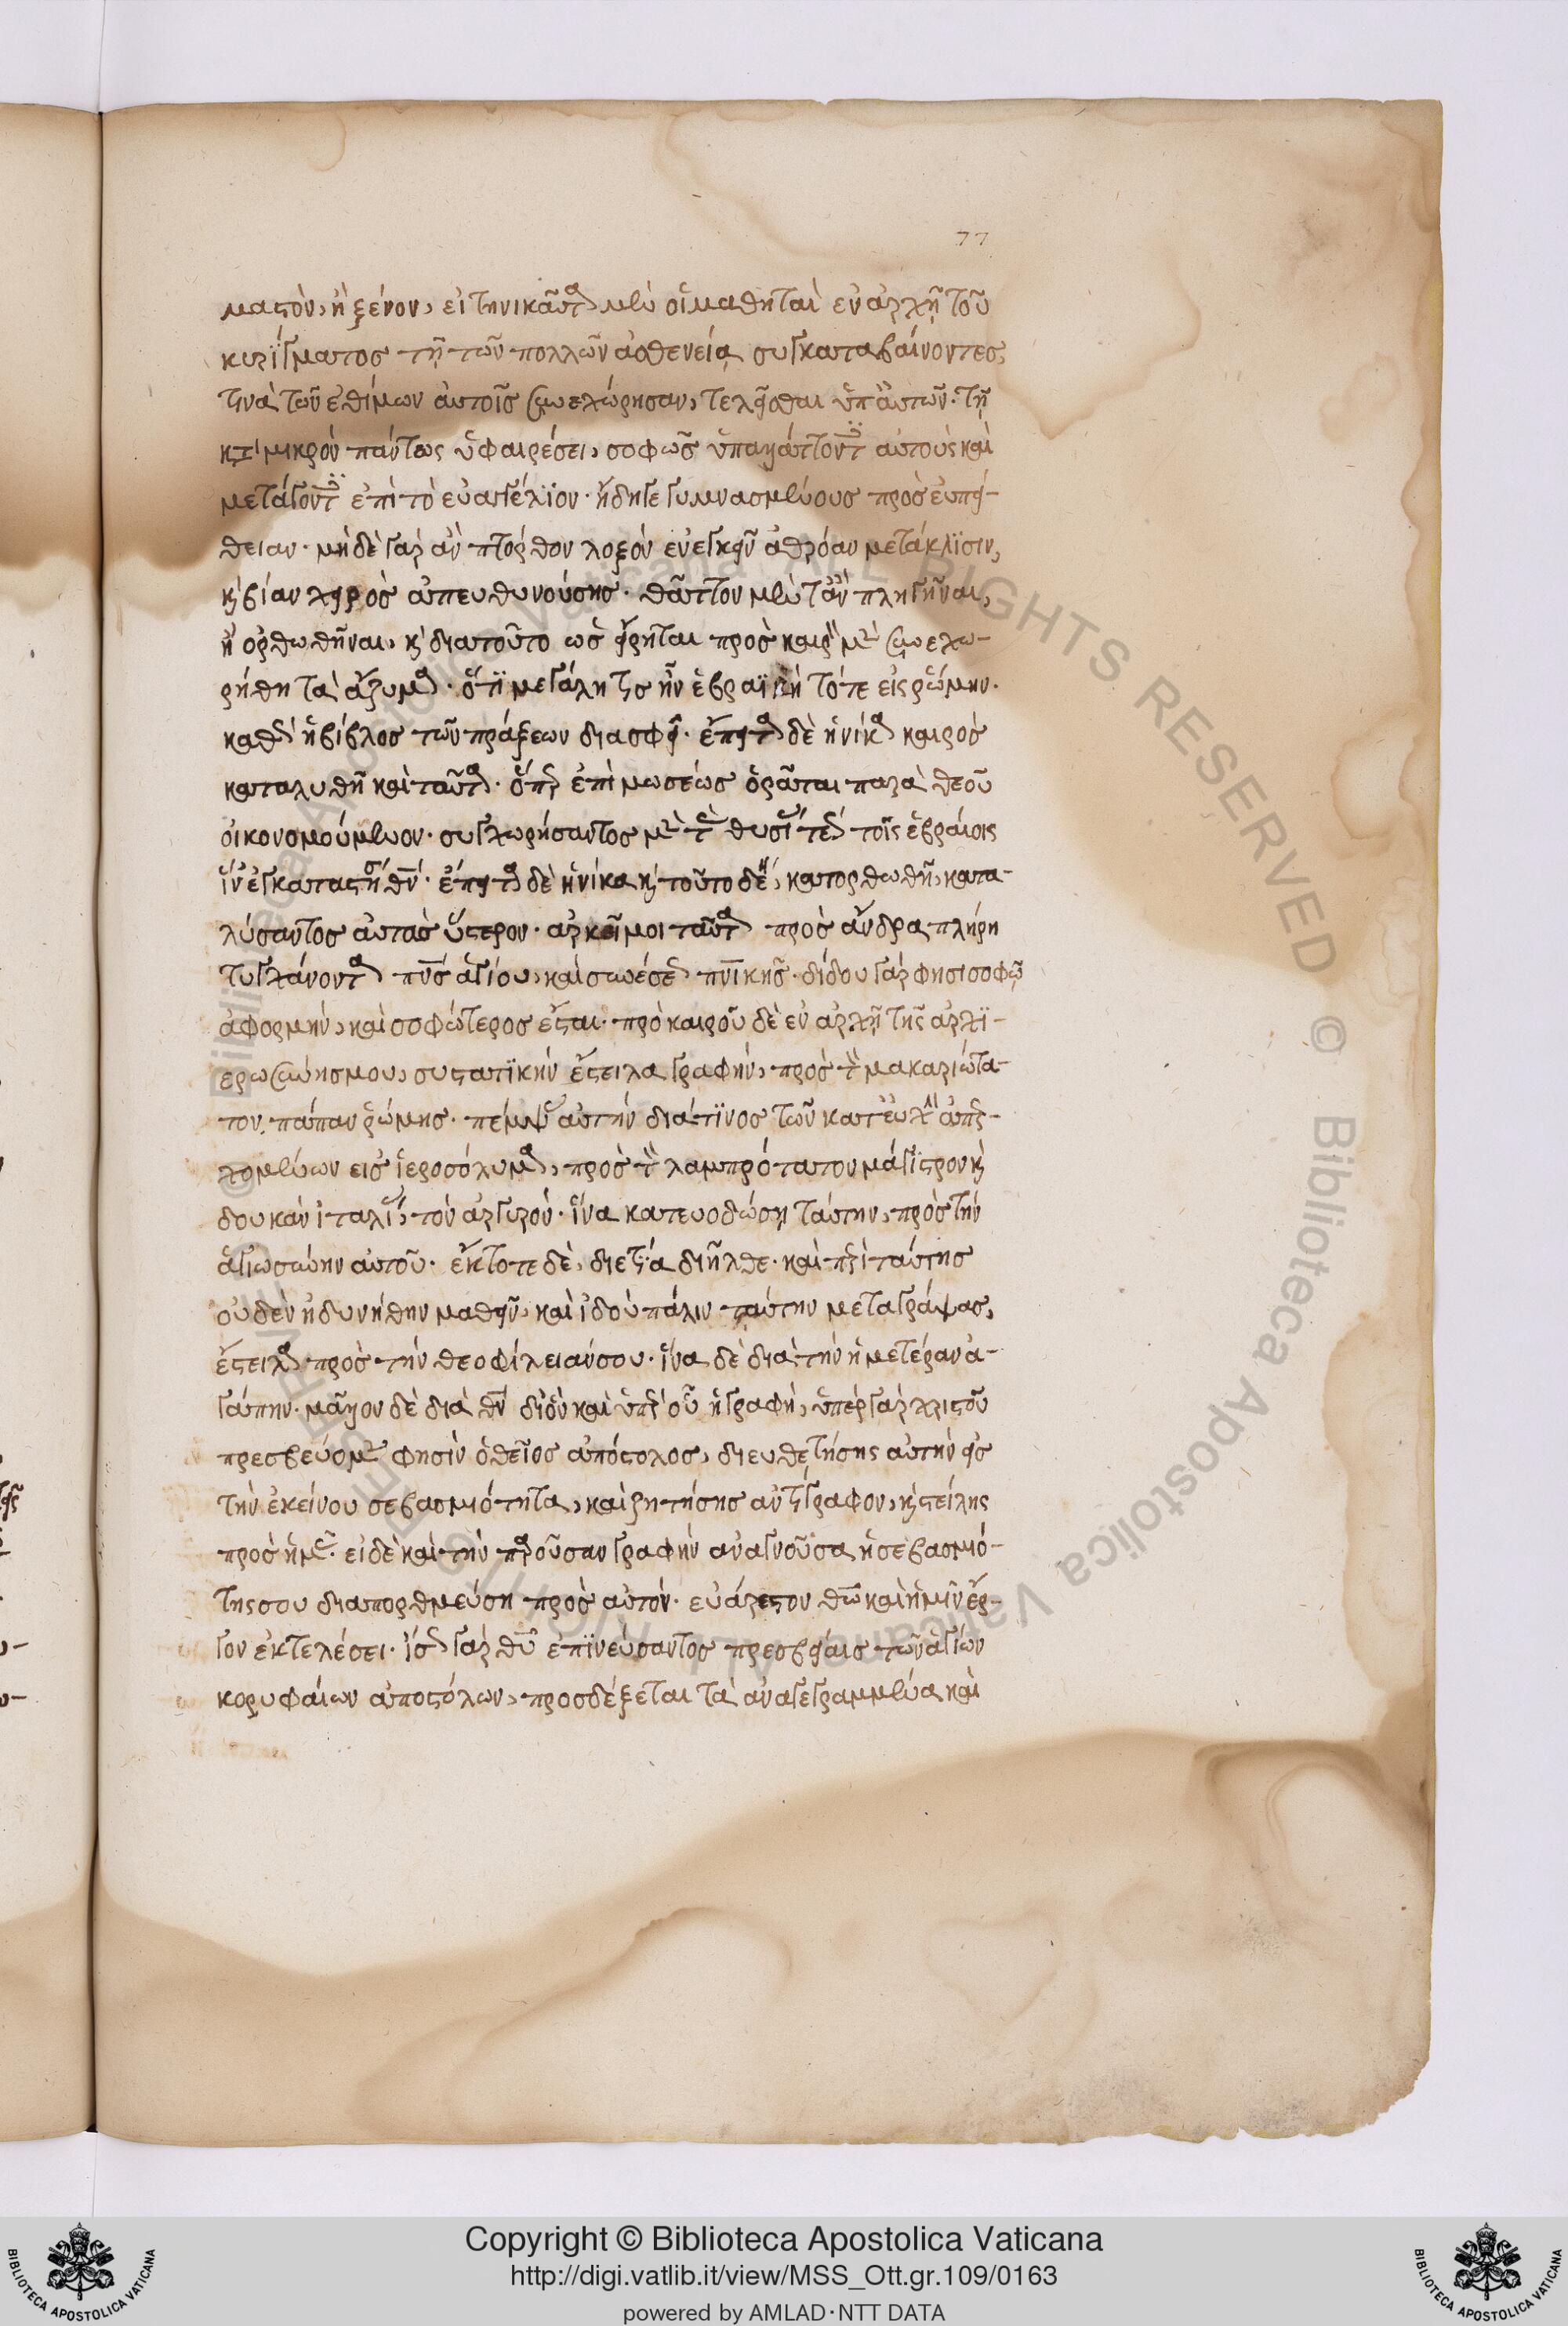 77
μαστὸν, ἢ ξένον, εἰ τηνικαῦτα μὲν οἱ μαθηταὶ ἐν ἀρχῇ τοῦ
κηρύγματος τῇ τῶν πολλῶν ἀσθενείᾳ συγκαταβαίνοντες,
τινὰ τῶν ἐθίμων αὐτοῖς συνεχώρησαν, τελεῖσθαι ὑπ' αὐτῶν· τῇ
κατὰ μικρὸν πάντως ὑφαιρέσει, σοφῶς ὑπαλλάττοντες αὐτοὺς καὶ
μετάγοντες ἐπὶ τὸ εὐαγγέλιον· ἤδη γεγυμνασμένους πρὸς εὐπεί-
θειαν· μὴ δὲ γὰρ ἂν πτόρθον λοξὸν ἐνεγκεῖν ἀθρόαν μετάκλισιν,
καὶ βίαν χειρὸς ἀπευθυνούσης· θᾶττον μὲν τ' ἂν πληγῆναι,
ἢ ὀρθωθῆναι, καὶ διατοῦτο ὡς εἴρηται πρὸς καιρὸν μὲν συνεχω-
ρήθη τὰ ἄζυμα· ὅτι μεγάλη τις ἦν ἑβραϊκὴ τότε εἰς ῥώμην·
καθὰ ἡ βίβλος τῶν πράξεων διασαφεῖ· ἔπειτα δὲ ἡνίκα καιρὸς
καταλυθῆ καὶ ταῦτα· ὅπερ ἐπὶ μωσέως ὁρᾶται παρὰ θεοῦ
οἰκονομούμενον· συγχωρήσαντος μὲν τὰς θυσίας τελεῖν τοῖς ἑβραίοις
λύσαντος αὐτὰς ὕστερον· ἀρκεῖ μοι ταῦτα πρὸς ἄνδρα πλήρη
τυγχάνοντα πνς ἁγίου, καὶ συνέσεως πνικῆς· δίδου γὰρ φησι σοφῷ
ἀφορμὴν, καὶ σοφώτερος ἔσται· πρὸ καιροῦ δὲ ἐν ἀρχῇ τῆς ἀρχι-
ερωσύνης μου, συστατικὴν ἔστειλα γραφὴν, πρὸς τὸν μακαριώτα-
τον πάπαν ῥώμης· πέμψας αὐτὴν διά τινος τῶν κατ' εὐχὴν ἀπερ-
χομένων εἰς ἱεροσόλυμα, πρὸς τὸν λαμπρότατον μάγιστρον καὶ
δουκὰν ἰταλίας, τὸν ἀργυρόν· ἵνα κατευοδώσῃ ταύτην, πρὸς τὴν
ἁγιωσύνην αὐτοῦ· ἔκτοτε δὲ, διετία διῆλθε· καὶ περὶ ταύτης
οὐδὲν ἠδυνήθην μαθεῖν, καὶ ἰδοὺ πάλιν ταύτην μεταγράψας,
ἔστειλα πρὸς τὴν θεοφίλειάν σου· ἵνα δὲ διὰ τὴν ἡμετέραν ἀ-
γάπην· μᾶλλον δὲ διὰ θν δι' ὃν καὶ ὑπὲρ οὗ ἡ γραφὴ, ὑπὲρ γὰρ χριστοῦ
πρεσβεύομεν φησὶν ὁ θεῖος ἀπόστολος, διευθετήσῃς αὐτὴν εἰς
τὴν ἐκείνου σεβασμιότητα, καὶ ζητήσῃς ἀντίγραφον, καὶ στείλῃς
πρὸς ἡμᾶς· εἰ δὲ καὶ τὴν παροῦσαν γραφὴν ἀναγνοῦσα ἡ σεβασμιό-
της σου διαπορθμεύσῃ πρὸς αὐτόν· εὐάρεστον θῶ καὶ ἡμῖν ἔρ-
γον ἐκτελέσει· ἴσως γὰρ θυ ἐπινεύσαντος πρεσβείαις τῶν ἁγίων
κορυφαίων ἀποστόλων, προσδέξεται τὰ ἀναγεγραμμένα καὶ
Copyright © Biblioteca Apostolica Vaticana
http://digi.vatlib.it/view/MSS_Ott.gr.109/0163
powered by AMLAD·NTT DATA